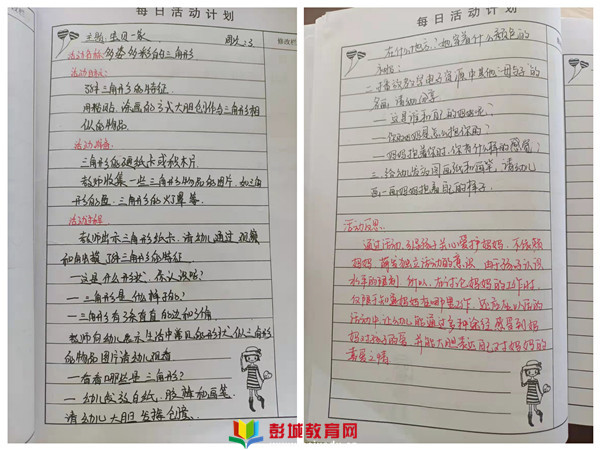 每日活动计划
主题：宝贝一家 周次：3
活动名称：多姿多彩的三角形
活动目标：
了解三角形的特征
用粘贴、添画的方式大胆创作与三角形相
似的物品
活动准备：
三角形的硬纸卡或积木片
教师收集一些三角形物品的图片，如三角
形的屋、三角形的灯罩等
活动过程
教师出示三角形纸卡，请幼儿通过观察
和触摸了解三角形的特征
—这是什么形状，你认识吗？
—三角形是什么样子的？
—三角形有三条直直的边和三个角
教师向幼儿展示生活中常见的形状似三角形
的物品图片请幼儿观看
—看看哪些是三角形？
—幼儿发放白纸、胶棒和画笔
请幼儿大胆发挥创意
每日活动计划
在什么地方？她穿着什么颜色的
衣服？
二、播放教学电子资源中其他一母子的
—这是谁和自己的妈妈呢？
—你的妈妈是怎么抱你的？
—妈妈抱着你时，你有什么样的感觉？
三、给幼儿发放图画纸和画笔，请幼儿
画一画妈妈抱着自己的样子
活动反思：
通过活动，引导孩子关心爱护妈妈，不依赖
妈妈，萌发独立活动的意识，由于孩子认识
水平的限制，所以，在讨论妈妈的工作时，
仅限于知道妈妈在哪里工作，还应在以后的
活动中让幼儿能通过多种途径感受到妈
妈对孩子的爱，并能大胆表达自己对妈妈的
喜爱之情
彭城教育网